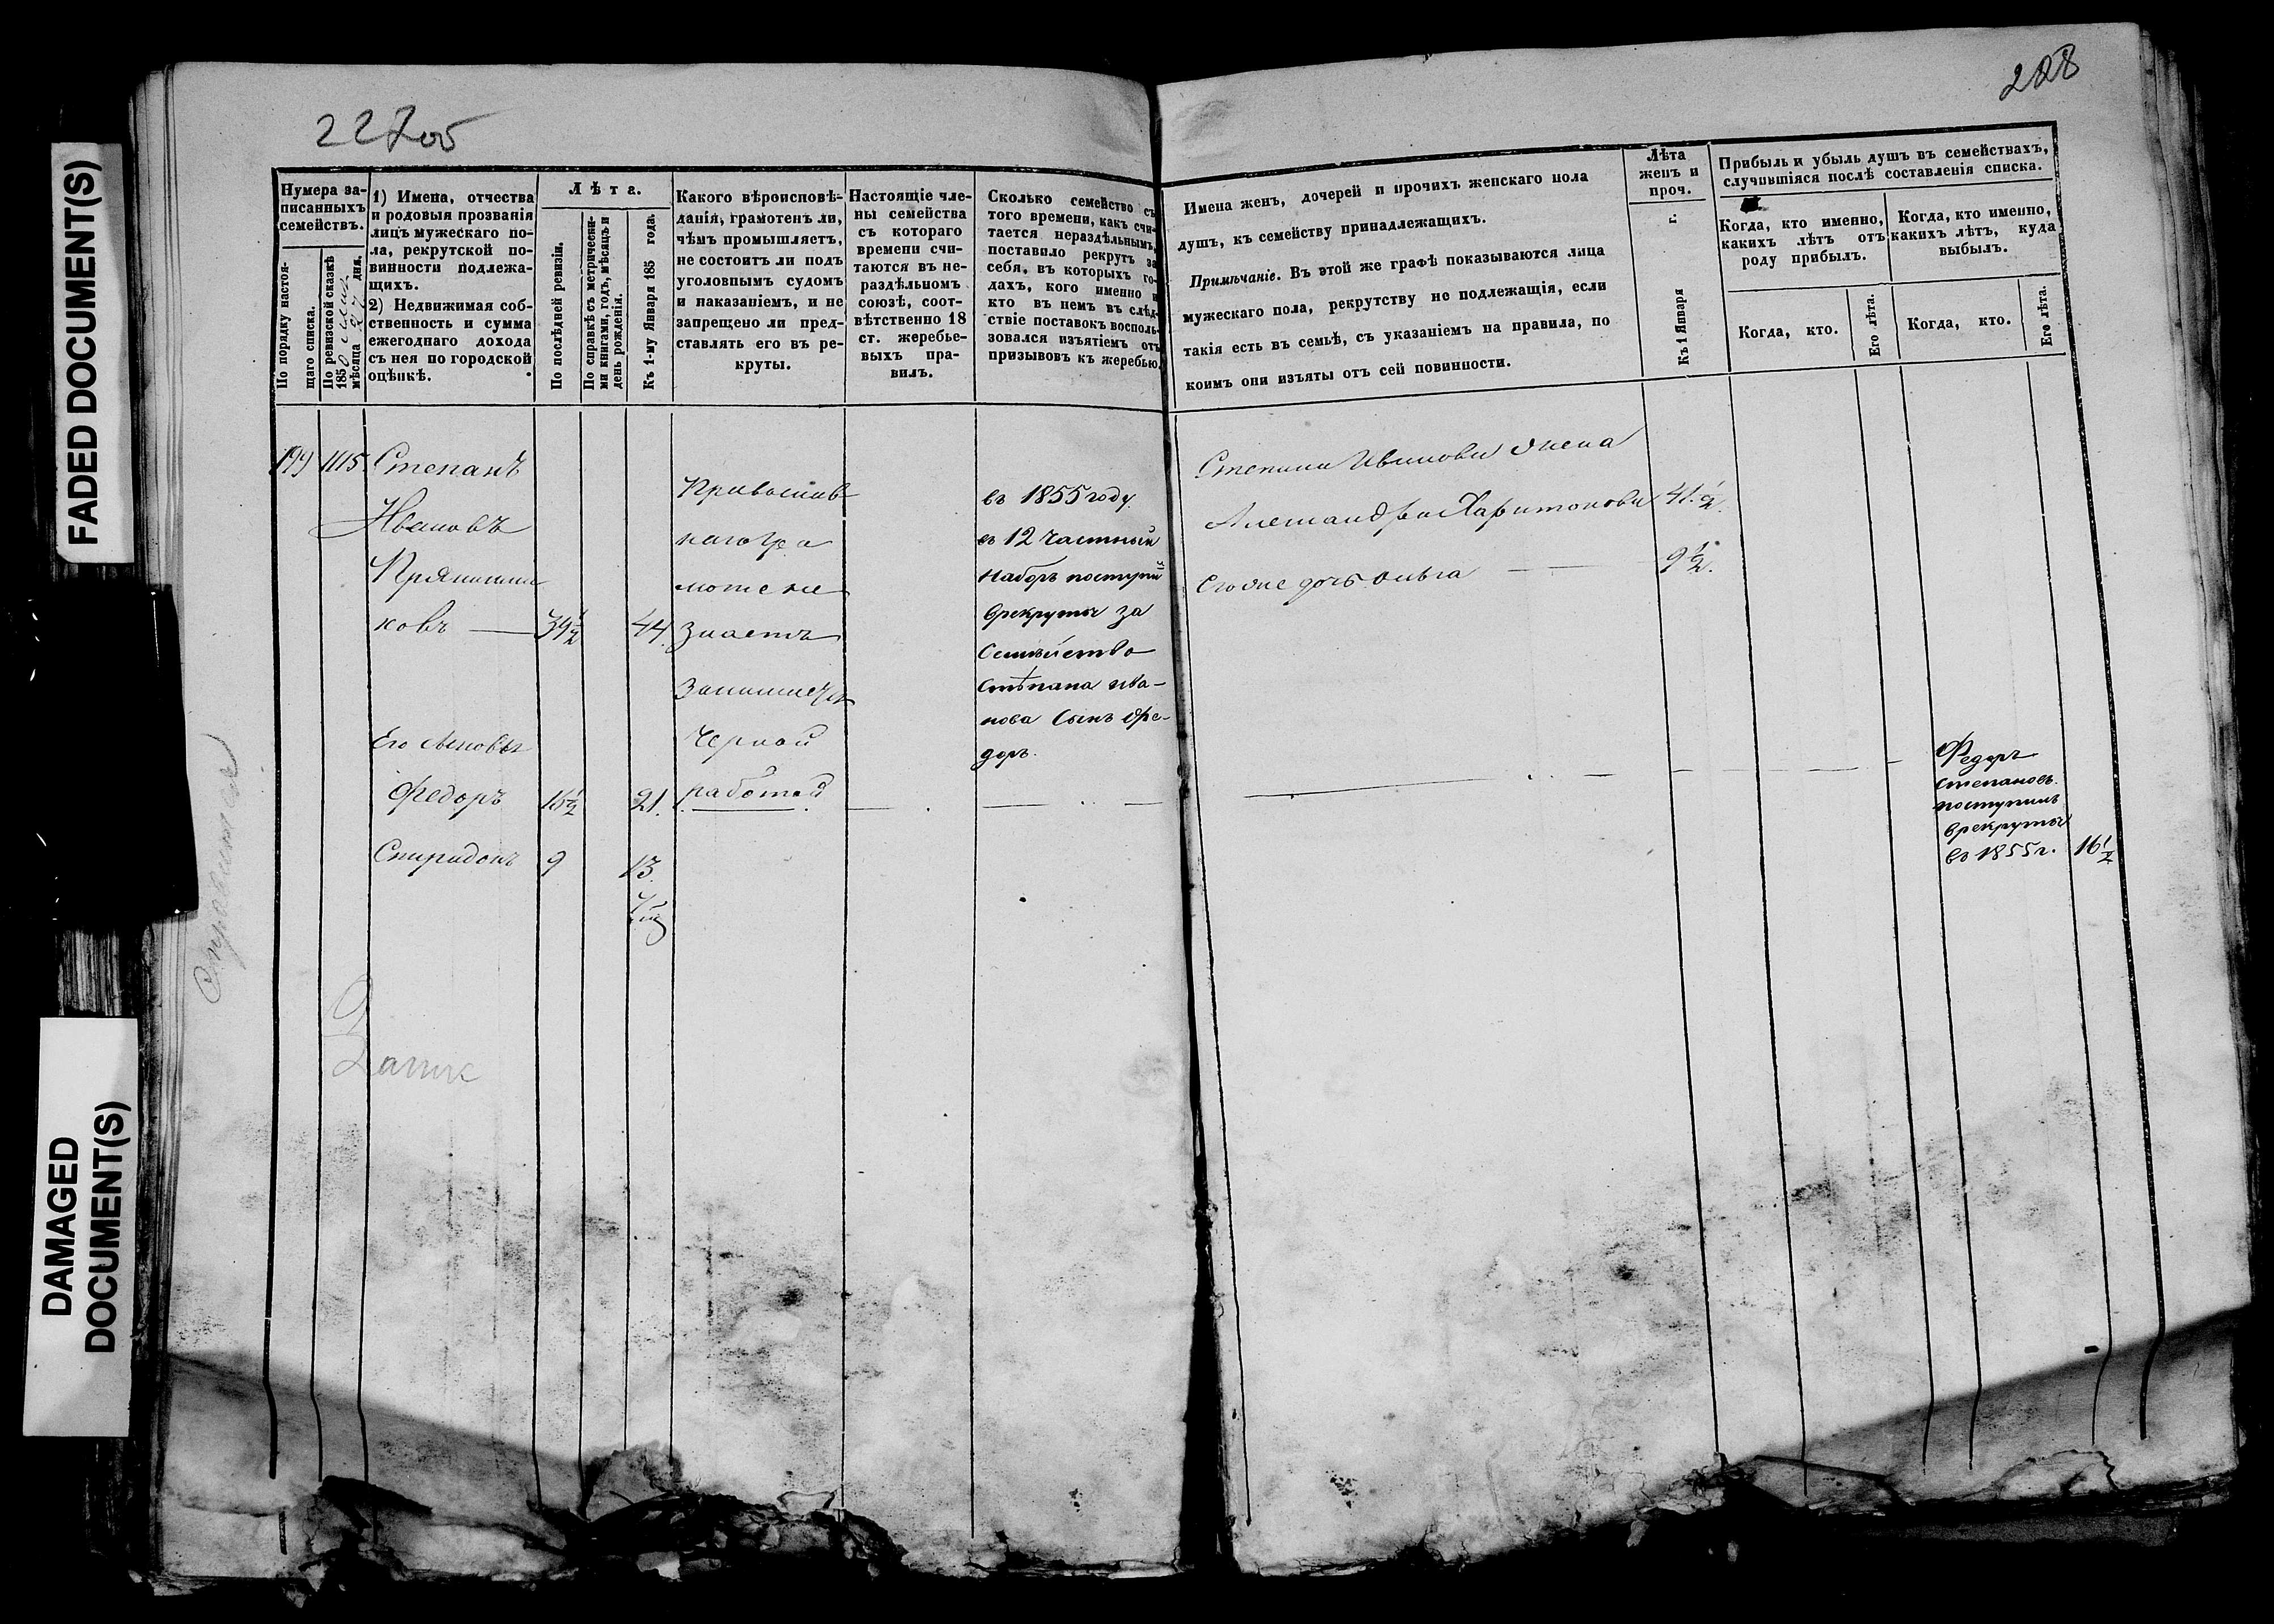 FADED DOCUMENT(S)
DAMAGED
DOCUMENT(S)
227об
Нумера за-
писанныхъ
семействъ.
По порядку настоя-
щаго списка.
По ревизской сказкѣ
1850
мѣсяца 27 дня.
1) Имена, отчества
и родовыя прозванія
лицъ мужескаго по-
ла, рекрутской по-
винности подлежа-
щихъ.
2) Недвижимая соб-
ственность и сумма
ежегоднаго дохода
съ нея по городской
оцѣнкѣ.
Лѣта.
По послѣдней ревизіи.
По справкѣ съ метрически-
ми книгами, годъ, мѣсяцъ и
день рожденія.
Къ 1-му Января 185 года.
Какого вѣроисповѣ-
данія, грамотенъ ли,
чѣмъ промышляетъ,
не состоитъ ли подъ
уголовнымъ судомъ
и наказаніемъ, и не
запрещено ли пред-
ставлять его въ ре-
круты.
Настоящіе чле-
ны семейства
съ котораго
времени счи-
таются въ не-
раздѣльномъ
союзѣ, соот-
вѣтственно 18
ст. жеребье-
выхъ пра-
вилъ.
Сколько семейство съ
того времени, какъ счи-
тается нераздѣльнымъ,
поставило рекрутъ за
себя, въ которыхъ го-
дахъ, кого именно и
кто въ немъ въ слѣд-
ствіе поставокъ восполь-
зовался изъятіемъ отъ
призывовъ къ жеребью.
199 1115. Степанъ
Ивановъ
Прянишни
ковъ — 39½ 44.
Его сыновья
Федоръ 16½ 21.
Спиридонъ 9 13.
Православ
наго Гра
моте не
знаетъ
занимается
Черной
работой
въ 1855 году.
въ 12 частный
наборъ поступи
врекруты за
Семѣйство
Стѣпана Ива-
нова Сынъ Фе-
доръ.
228
Имена женъ, дочерей и прочихъ женскаго пола
душъ, къ семейству принадлежащихъ.
Примѣчаніе. Въ этой же графѣ показываются лица
мужескаго пола, рекрутству не подлежащія, если
такія есть въ семьѣ, съ указаніемъ на правила, по
коимъ они изъяты отъ сей повинности.
Лѣта
женъ и
проч.
Къ 1 Января г.
Прибыль и убыль душъ въ семействахъ,
случившіяся послѣ составленія списка.
Когда, кто именно,
какихъ лѣтъ отъ
роду прибылъ.
Когда, кто именно,
какихъ лѣтъ, куда
выбылъ.
Когда, кто.
Его лѣта.
Когда, кто.
Его лѣта.
Степана Иванова жена
Александра Харитонова 41.½.
Его же дочь Ольга — 9½.
Федоръ
Степановъ
поступилъ
врекруты
въ 1855 г. 16½